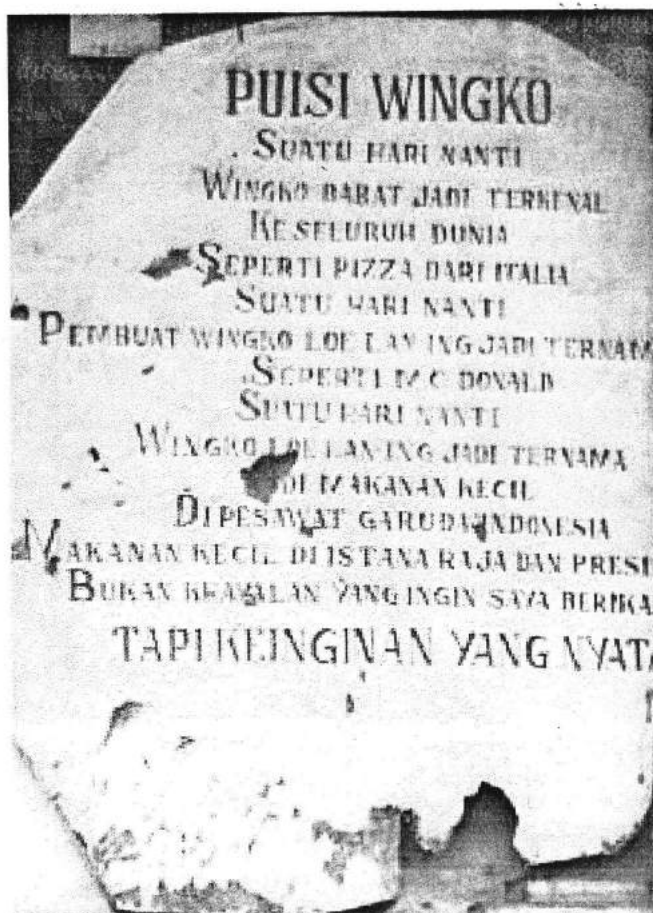 PUISI WINGKO
SUATU HARI NANTI
WINGKO BABAT JADI TERKENAL
KE SELURUH DUNIA
SEPERTI PIZZA DARI ITALIA
SUATU HARI NANTI
PEMBUAT WINGKO LOE LAN ING JADI TERNAMA
SEPERTI MC DONALD
SUATU HARI NANTI
WINGKO LOE LAN ING JADI TERNAMA
DI MAKANAN KECIL
DI PESAWAT GARUDA INDONESIA
MAKANAN KECIL DI ISTANA RAJA DAN PRESI
BUKAN KHAYALAN YANG INGIN SAYA BERIKA
TAPI KEINGINAN YANG NYATA